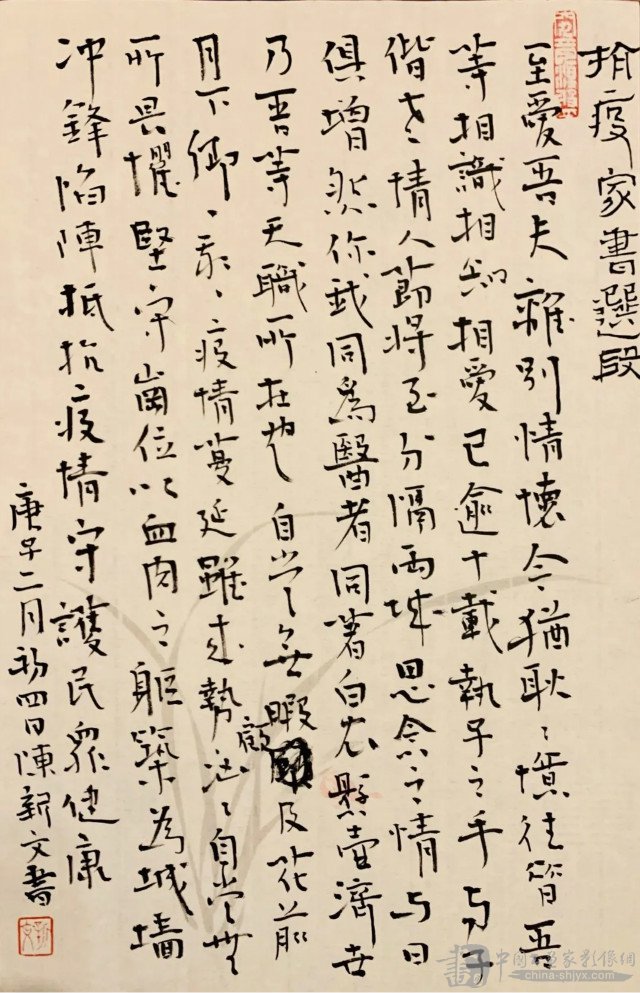 抗疫家書選段
至愛吾夫離別情懷今猶耿〻憶往昔吾
等相識相知相愛已逾十載執子之手与子
偕老情人節將至分隔兩城思念之情与日
俱增然你我同爲醫者同著白衣懸壺濟世
乃吾等天職所在也自當無暇顧及花前
月下卿〻我〻疫情蔓延雖来勢洶〻自當無
所畏懼堅守崗位以血肉之軀築為城墙
冲鋒陷陣抵抗疫情守護民眾健康
庚子二月初四日陳新文書
中國書畫家影像網
china-shjyx.com